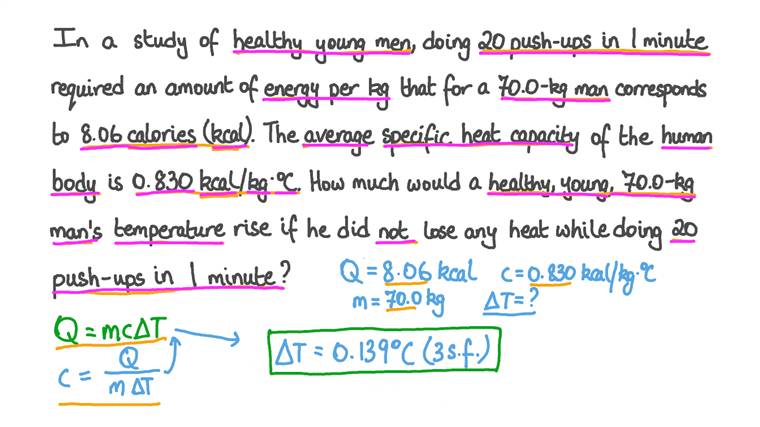 In a study of healthy young men, doing 20 push-ups in 1 minute
required an amount of energy per kg that for a 70.0-kg man corresponds
to 8.06 calories (kcal). The average specific heat capacity of the human
body is 0.830 kcal/kg·°C. How much would a healthy, young, 70.0-kg
man's temperature rise if he did not lose any heat while doing 20
push-ups in 1 minute?
Q = 8.06 kcal c = 0.830 kcal/kg·°C
m = 70.0 kg ΔT = ?
Q = mcΔT
c = Q / mΔT
ΔT = 0.139°C (3 s.f.)